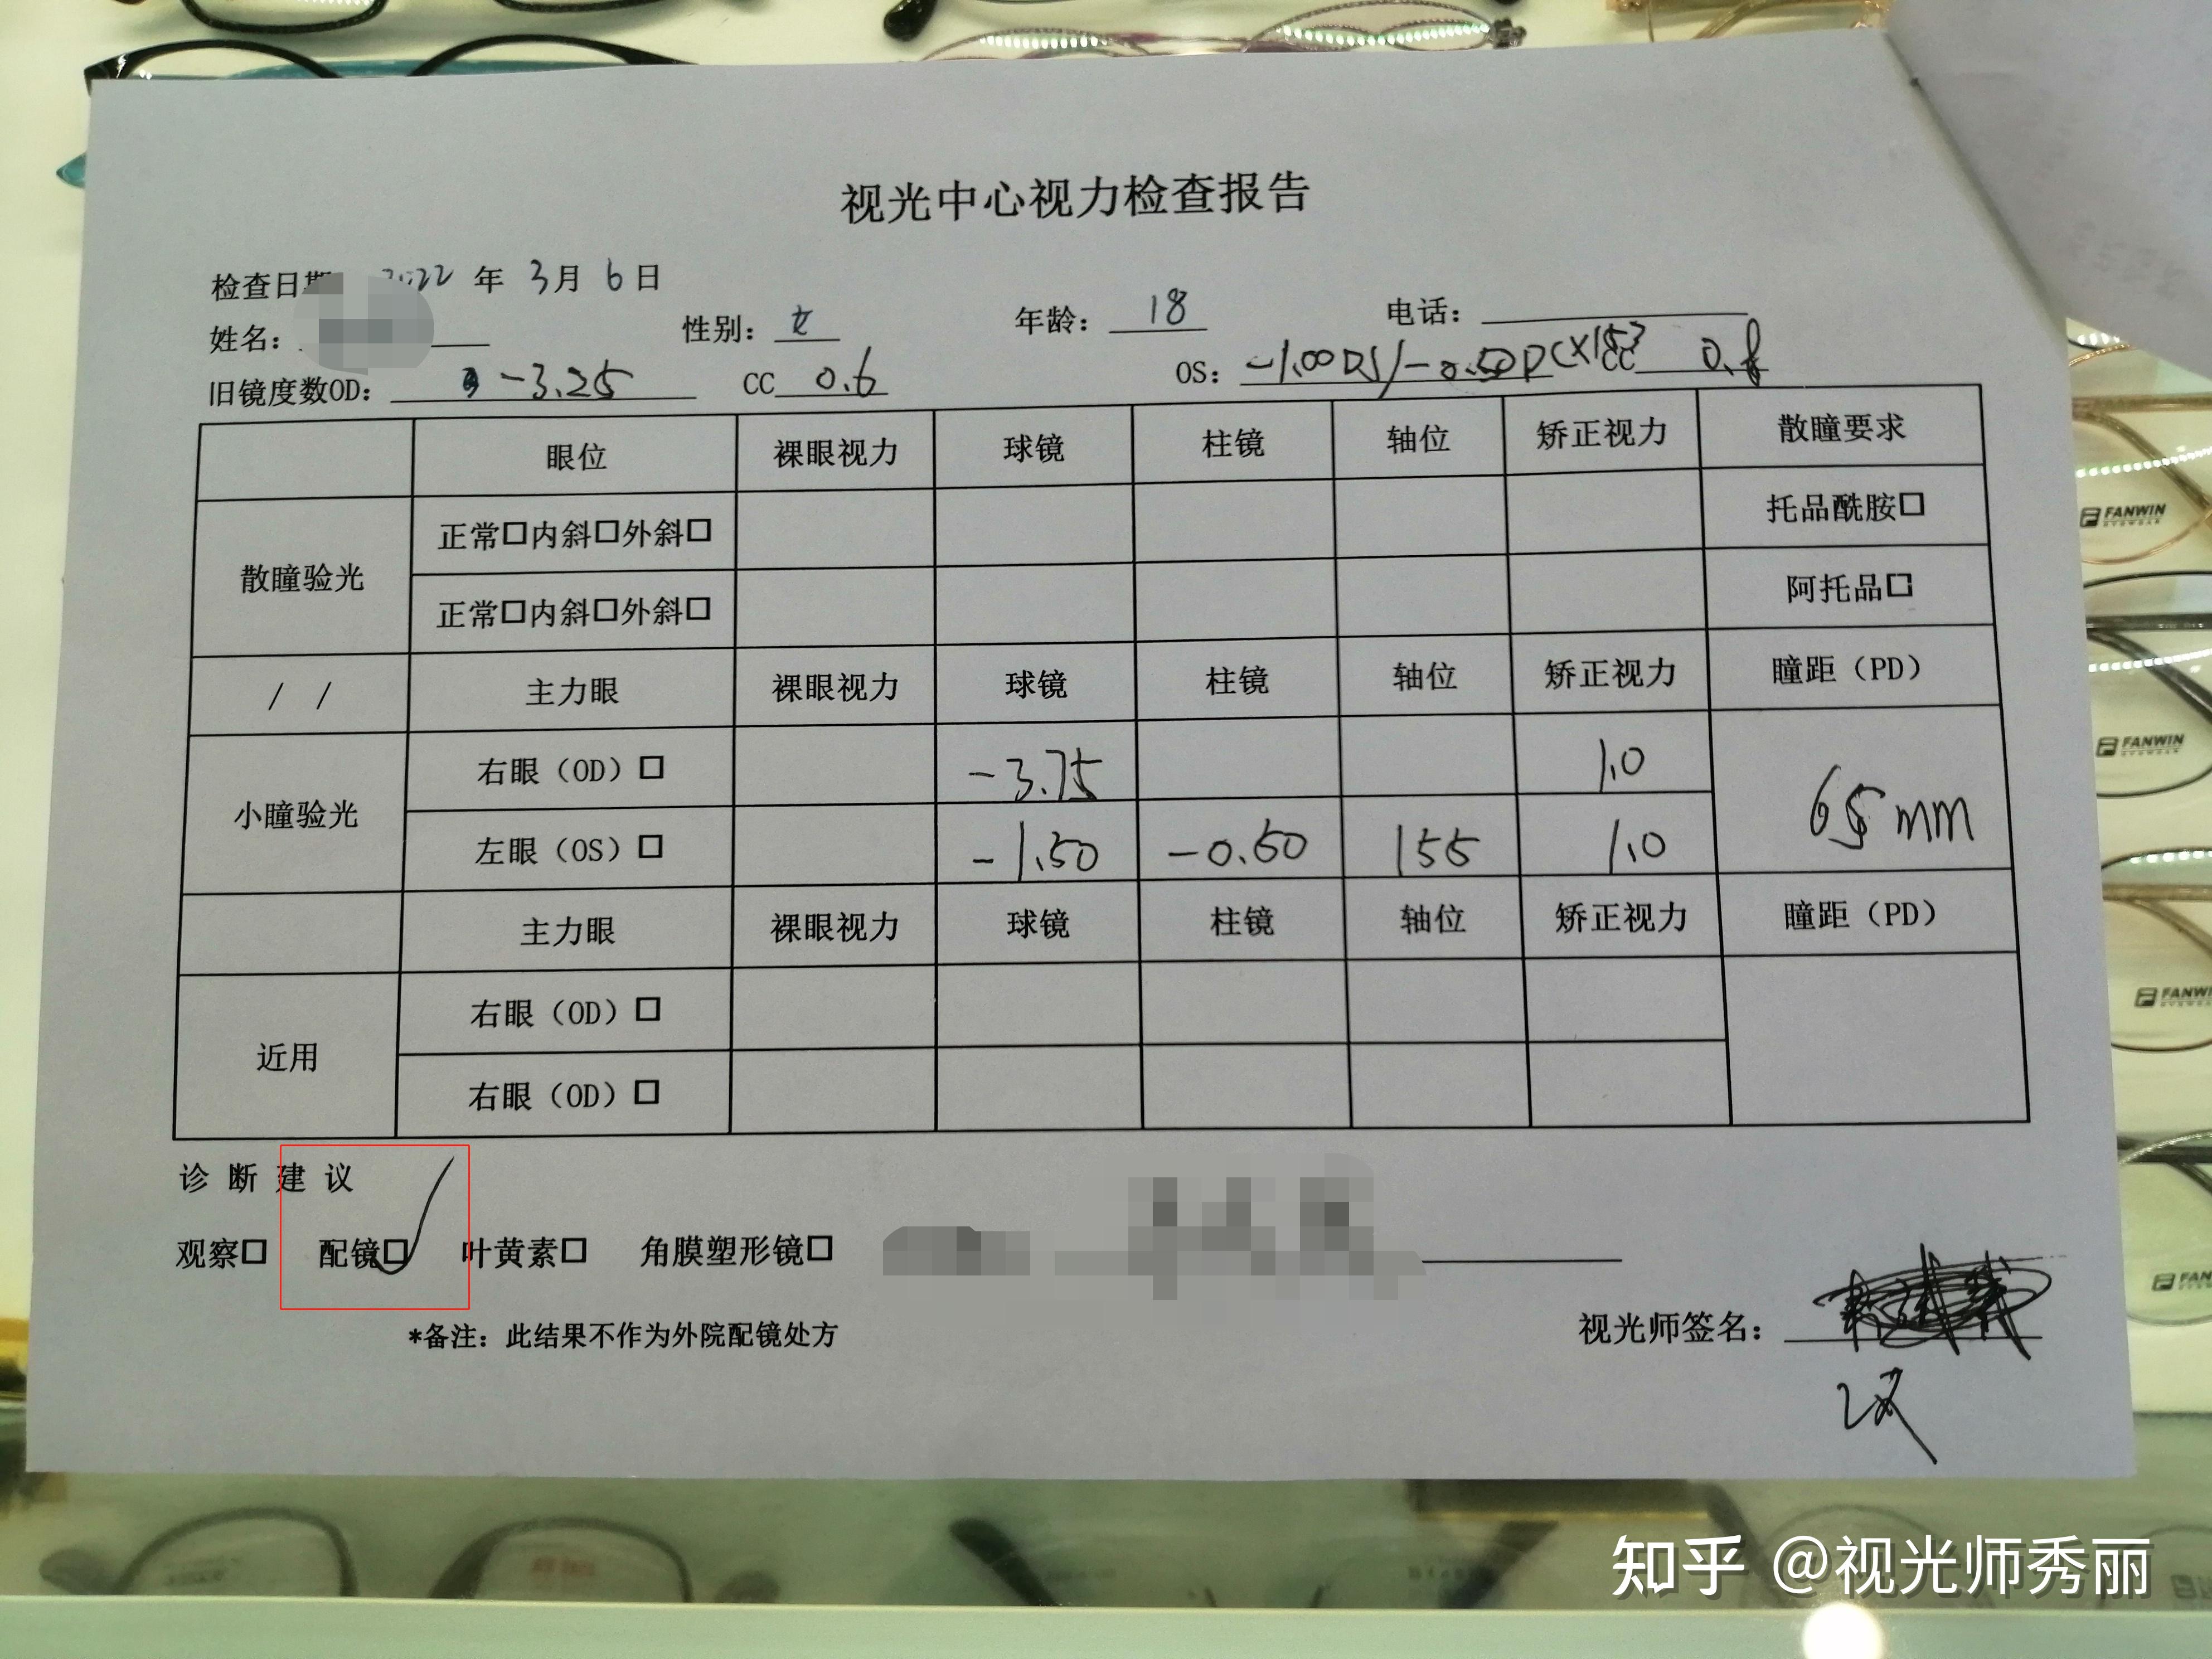 视光中心视力检查报告
检查日期 2022 年 3 月 6 日
姓名: 性别: 女 年龄: 18 电话:
旧镜度数OD: -3.25 CC 0.6 OS: -1.00DS/-0.50DC×153 CC 0.8
眼位 裸眼视力 球镜 柱镜 轴位 矫正视力 散瞳要求
散瞳验光 正常□内斜□外斜□ 托品酰胺□
正常□内斜□外斜□ 阿托品□
/ / 主力眼 裸眼视力 球镜 柱镜 轴位 矫正视力 瞳距（PD）
小瞳验光 右眼（OD）□ -3.75 1.0 65mm
左眼（OS）□ -1.50 -0.50 155 1.0
主力眼 裸眼视力 球镜 柱镜 轴位 矫正视力 瞳距（PD）
近用 右眼（OD）□
右眼（OD）□
诊断建议
观察□ 配镜□✓ 叶黄素□ 角膜塑形镜□
*备注：此结果不作为外院配镜处方
视光师签名：
FANWIN
EYEWEAR
FANWIN
EYEWEAR
知乎 @视光师秀丽